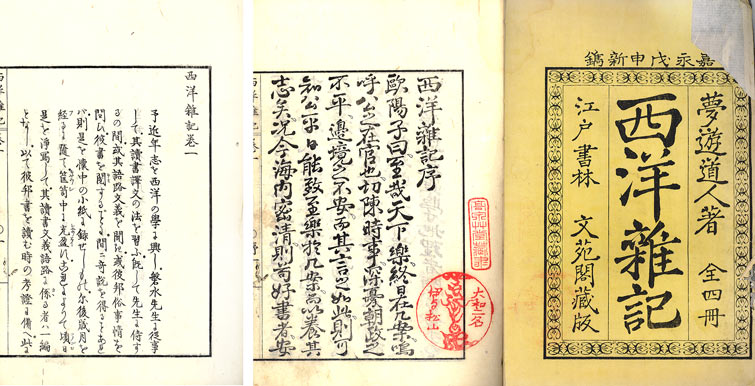 嘉永戊申新鐫
夢遊道人著 全四冊
西洋雜記
江戸書林 文苑閣藏版
西洋雜記序
歐陽子曰至哉天下樂終日在几案嗚
呼公之在官也切陳時事深憂朝政之
不平邊境之不安而其言之如此則可
知公平日能致至樂於几案而以養其
志矣况今海内宻清則苟好書者安
西洋雜記卷一
予近年志を西洋の學に興し磐水先生に從事
して其讀書譯文の法を習ふ既にして先生に侍す
るの間或其語路文義を聞に或彼邦俗事情を
問ひ彼書を閲する間に奇説を得ることあれ
バ則是を懐中の小紙に録せしもの尓後歳月を
經るに隨て筐笥中に充盈よりて頃日
是を淨寫して其讀書文義語路に係る者ハ一編
となし以て彼邦書を讀む時の考證に備へ